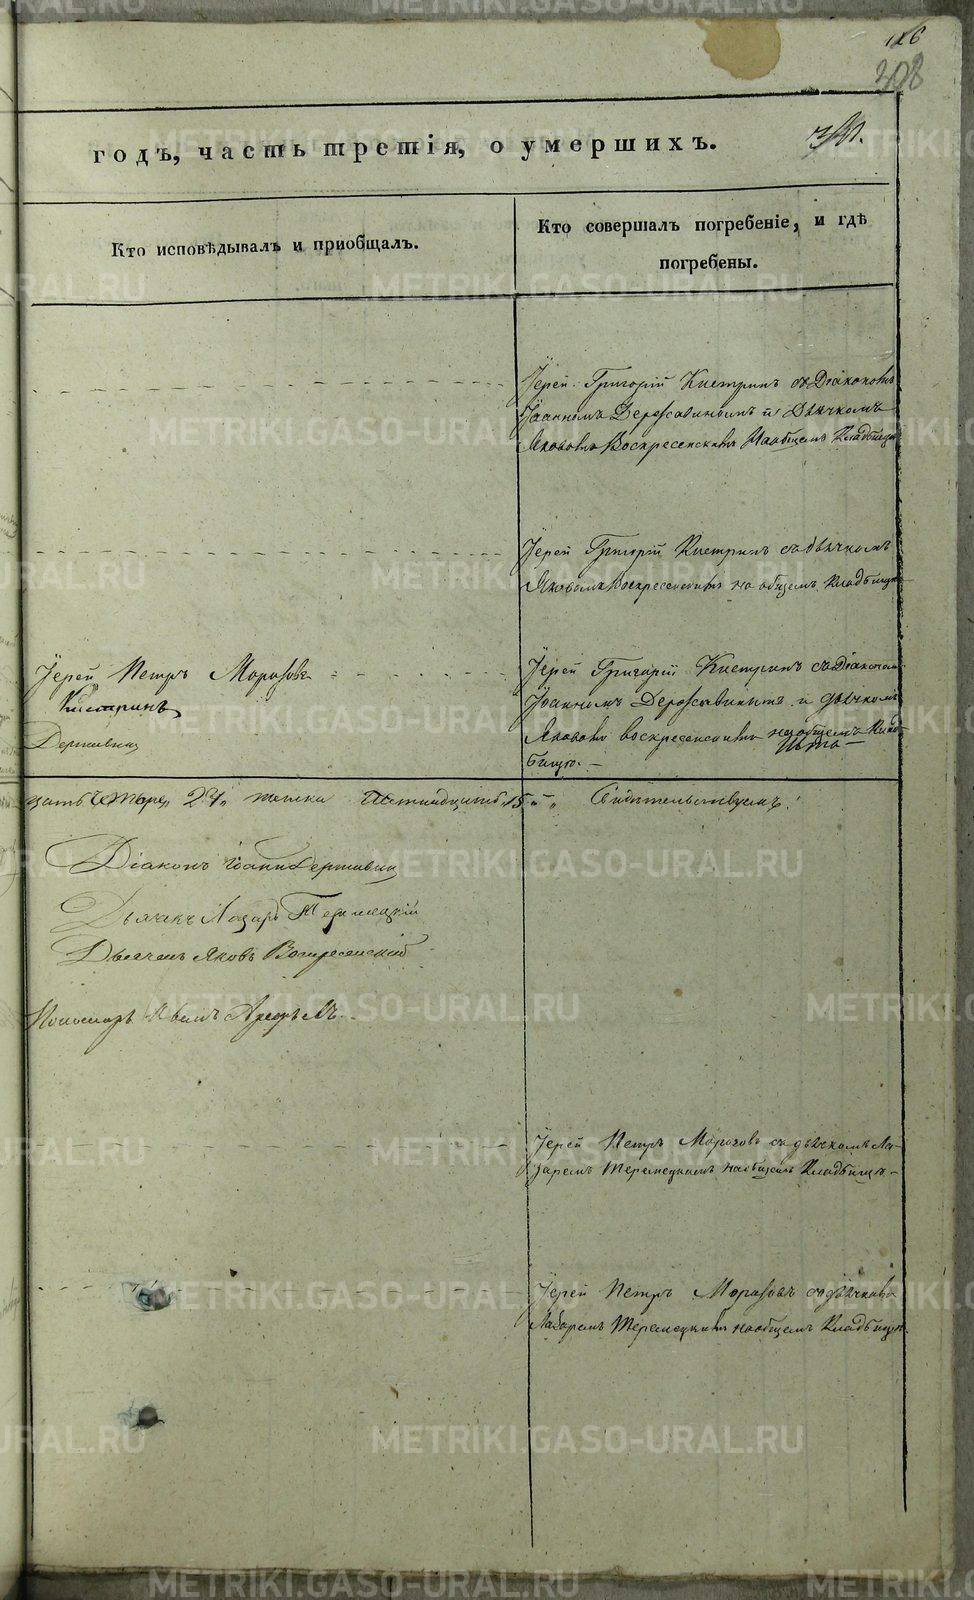 126
308
годъ, часть третія, о умершихъ.
Кто исповѣдывалъ и пріобщалъ.
Кто совершалъ погребеніе, и гдѣ
погребены.
Іерей Григорій Кистринъ съ Діакономъ
Іоанномъ Державинымъ и Дьячкомъ
Яковомъ Воскресенскимъ на общемъ Кладбищѣ
Іерей Григорій Кистринъ съ дьячкомъ
Яковомъ Воскресенскимъ на общемъ Кладбищѣ
Іерей Петръ Морозовъ
Кистринъ
Державинъ
Іерей Григорій Кистринъ съ Діакономъ
Іоанномъ Державинымъ и дьячкомъ
Яковомъ воскресенскимъ на общемъ Клад
бищѣ.
24 15 Свидѣтельствуемъ:
Діаконъ Іоаннъ Державинъ
Дьячекъ Лазарь Теремецкій
Дьячекъ Яковъ Воскресенскій
Пономарь
Іерей Петръ Морозовъ съ дьячкомъ Ла-
заремъ Теремецкимъ на общемъ Кладбищѣ
Іерей Петръ Морозовъ съ дьячкомъ
Лазаремъ Теремецкимъ на общемъ Кладбищѣ.
METRIKI.GASO-URAL.RU